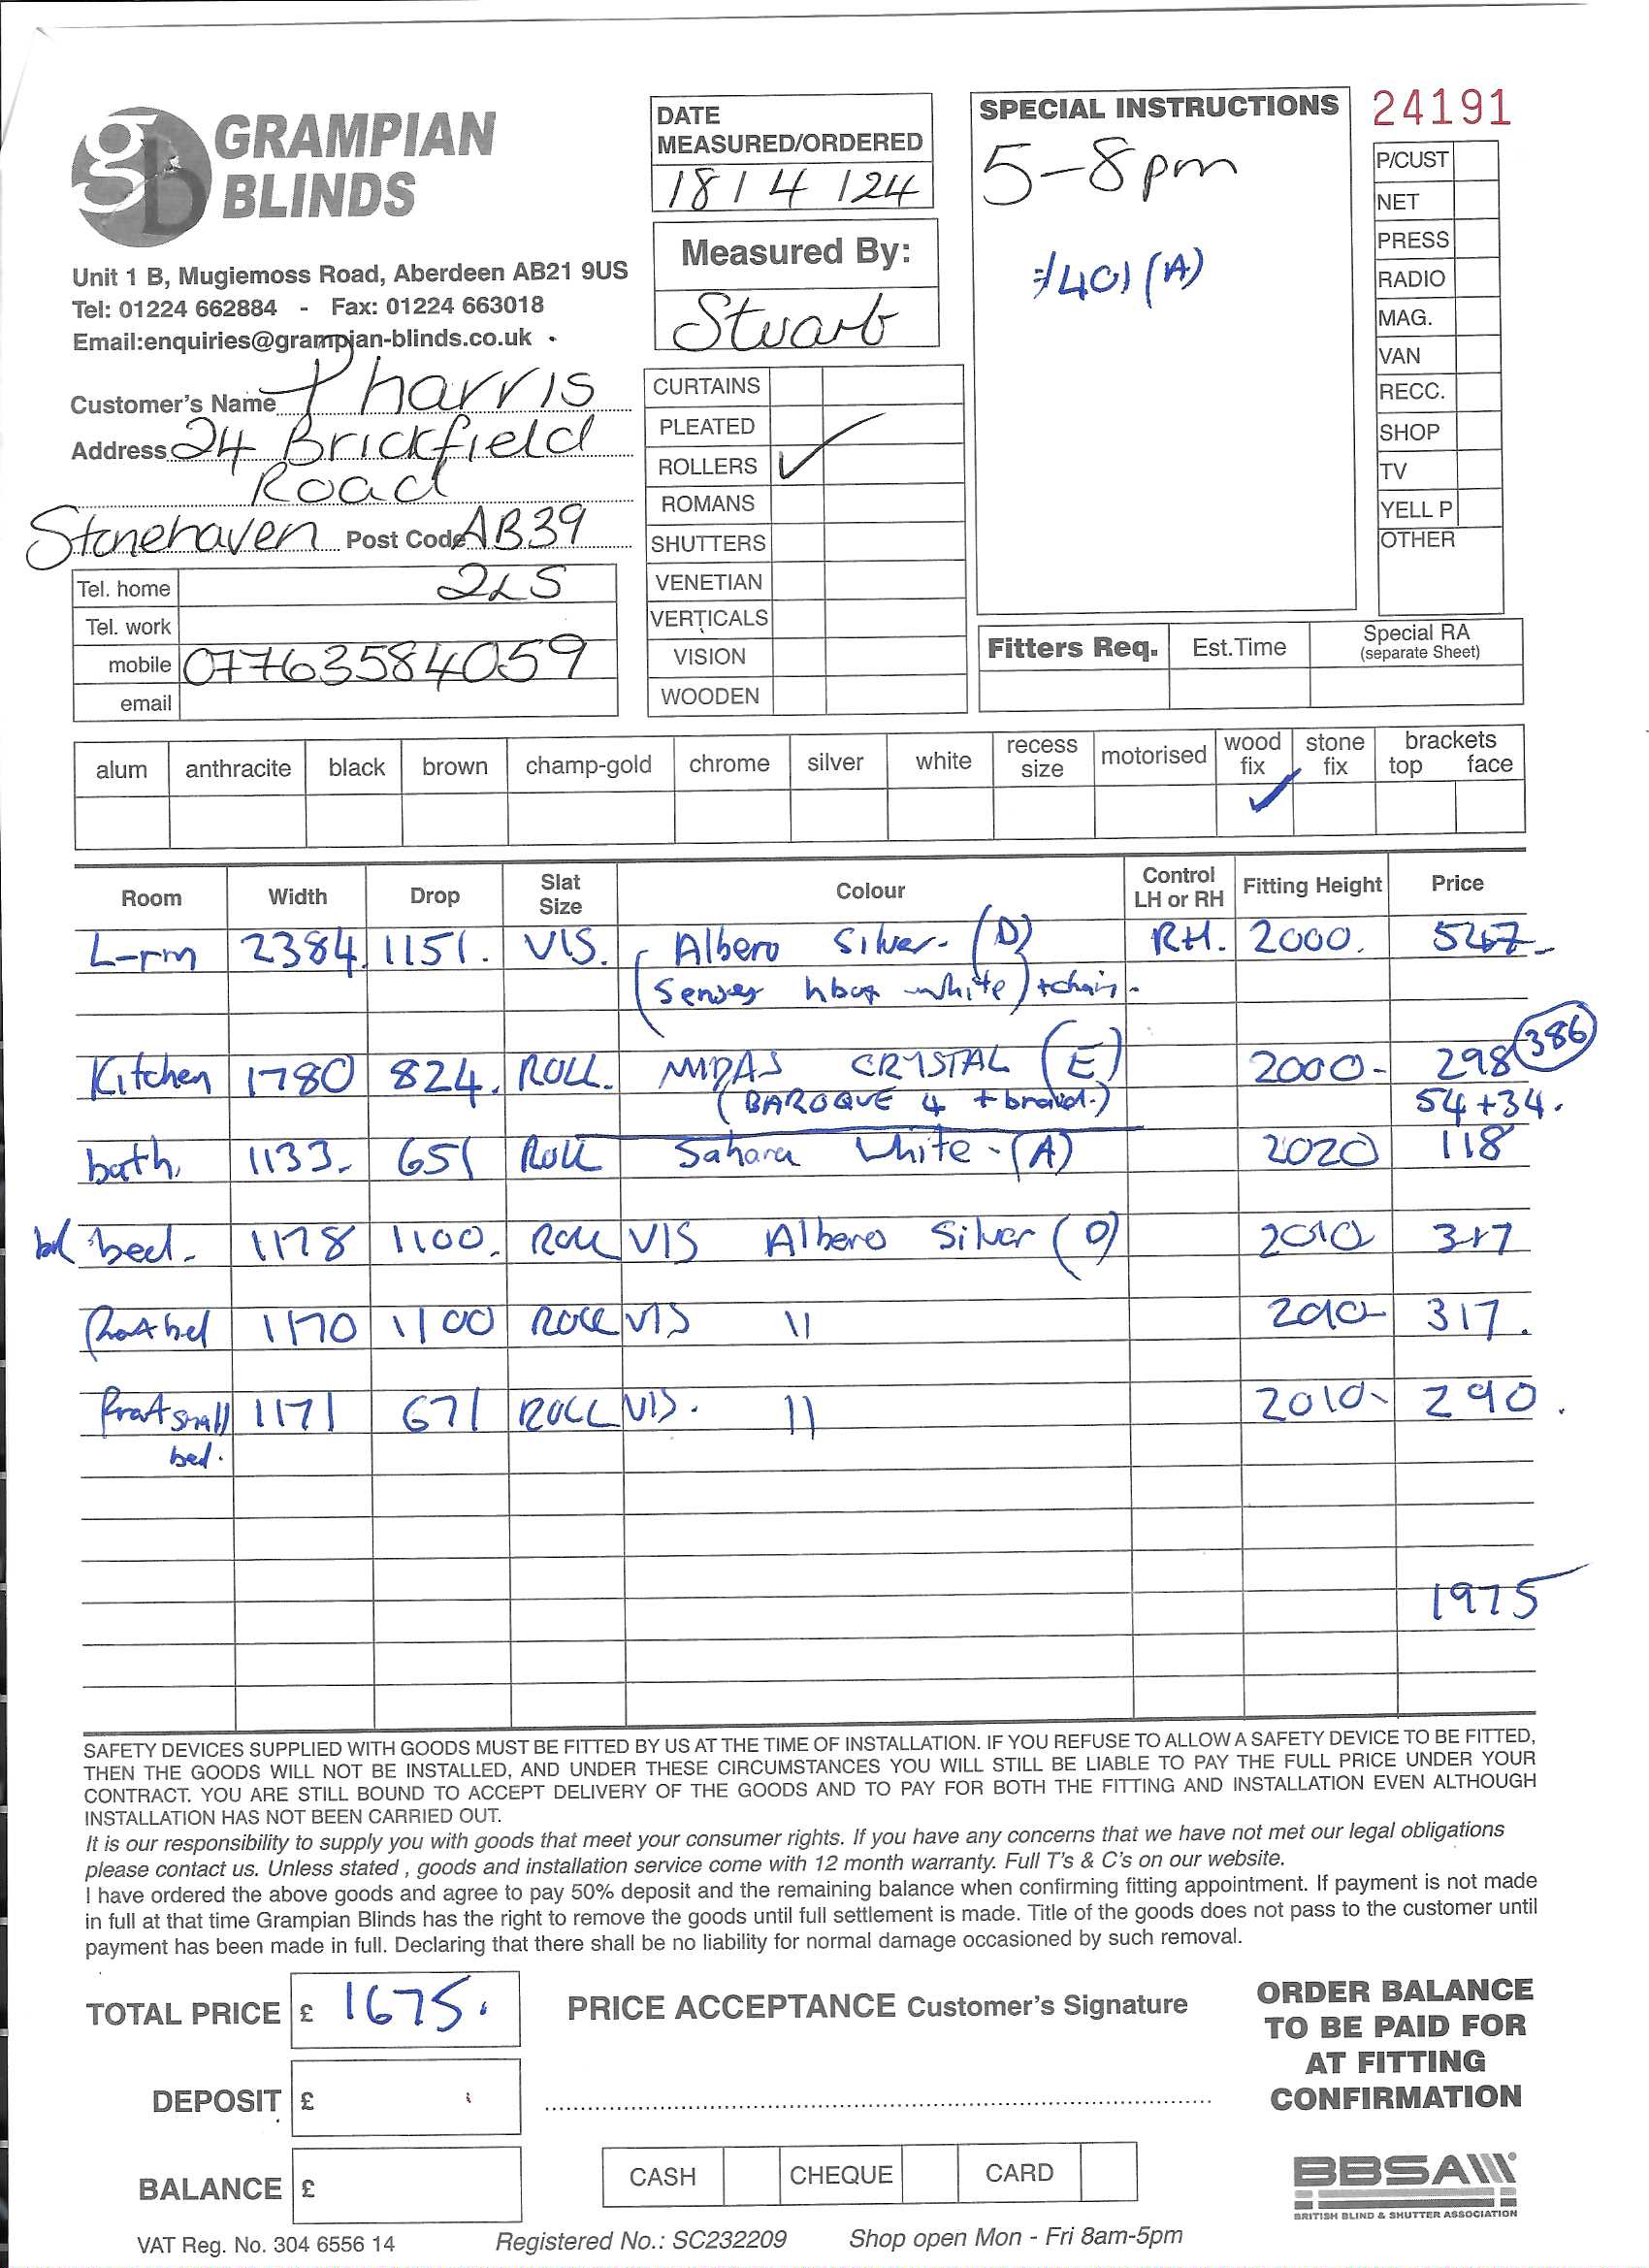 GRAMPIAN
BLINDS
Unit 1 B, Mugiemoss Road, Aberdeen AB21 9US
Tel: 01224 662884 - Fax: 01224 663018
Email:enquiries@grampian-blinds.co.uk
DATE
MEASURED/ORDERED
18/4/24
Measured By:
Stuart
SPECIAL INSTRUCTIONS
5-8pm
24191
P/CUST
NET
PRESS
RADIO
MAG.
VAN
RECC.
SHOP
TV
YELL P
OTHER
Customer's Name P harris
Address 24 Brickfield
Road
Stonehaven Post Code AB39
2LS
Tel. home
Tel. work
mobile 07763584059
email
CURTAINS
PLEATED
ROLLERS ✓
ROMANS
SHUTTERS
VENETIAN
VERTICALS
VISION
WOODEN
Fitters Req. Est.Time Special RA
(separate Sheet)
alum anthracite black brown champ-gold chrome silver white recess size motorised wood fix stone fix brackets top face
✓
Room Width Drop Slat Size Colour Control LH or RH Fitting Height Price
L-rm 2384. 1151. VIS. Albero Silver- (D) RH. 2000.
hbox white) + chain.
Kitchen 1780 824. ROLL. MIDAS CRYSTAL (E) 2000- 298 386
(BAROQUE 4 + braid.) 54+34.
bath. 1133- 651 ROLL Sahara White - (A) 2020 118
bed- 1178 1100. ROLL VIS Albero Silver (D) 2010 317
1170 1100 ROLL VIS 11 2010- 317.
Front small 1171 671 ROLL VIS. 11 2010- 290.
bed.
1975
SAFETY DEVICES SUPPLIED WITH GOODS MUST BE FITTED BY US AT THE TIME OF INSTALLATION. IF YOU REFUSE TO ALLOW A SAFETY DEVICE TO BE FITTED,
THEN THE GOODS WILL NOT BE INSTALLED, AND UNDER THESE CIRCUMSTANCES YOU WILL STILL BE LIABLE TO PAY THE FULL PRICE UNDER YOUR
CONTRACT. YOU ARE STILL BOUND TO ACCEPT DELIVERY OF THE GOODS AND TO PAY FOR BOTH THE FITTING AND INSTALLATION EVEN ALTHOUGH
INSTALLATION HAS NOT BEEN CARRIED OUT.
It is our responsibility to supply you with goods that meet your consumer rights. If you have any concerns that we have not met our legal obligations
please contact us. Unless stated , goods and installation service come with 12 month warranty. Full T's & C's on our website.
I have ordered the above goods and agree to pay 50% deposit and the remaining balance when confirming fitting appointment. If payment is not made
in full at that time Grampian Blinds has the right to remove the goods until full settlement is made. Title of the goods does not pass to the customer until
payment has been made in full. Declaring that there shall be no liability for normal damage occasioned by such removal.
TOTAL PRICE £ 1675.
PRICE ACCEPTANCE Customer's Signature
DEPOSIT £
BALANCE £
CASH CHEQUE CARD
ORDER BALANCE
TO BE PAID FOR
AT FITTING
CONFIRMATION
BBSA
BRITISH BLIND & SHUTTER ASSOCIATION
VAT Reg. No. 304 6556 14 Registered No.: SC232209 Shop open Mon - Fri 8am-5pm